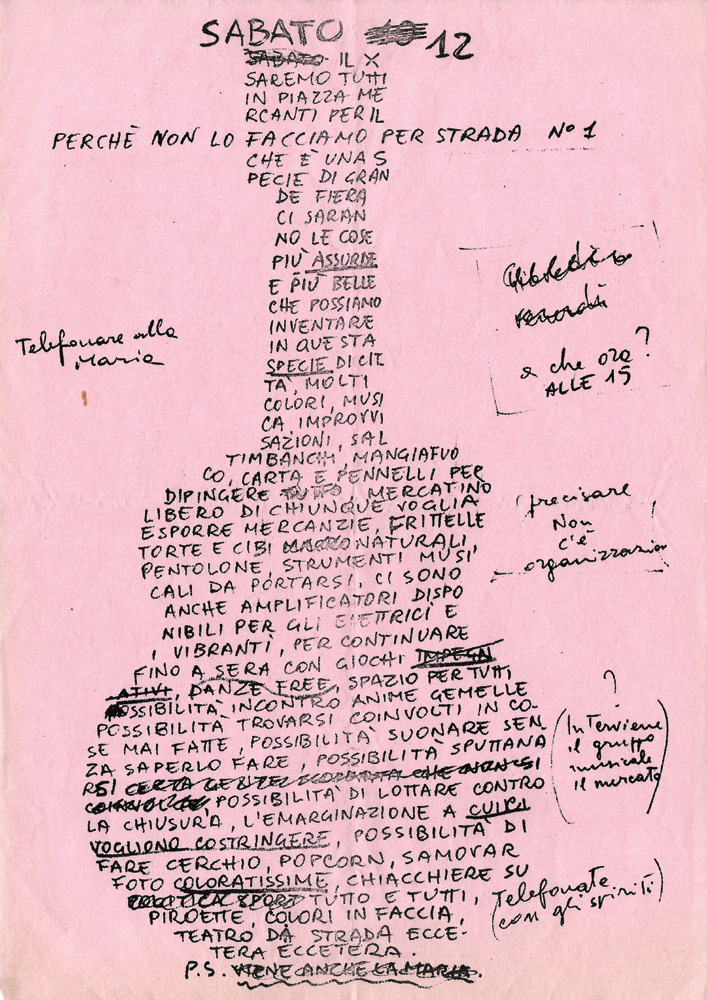 SABATO 12
SABATO IL X
SAREMO TUTTI
IN PIAZZA ME
RCANTI PER IL
PERCHÈ NON LO FACCIAMO PER STRADA N° 1
CHE È UNA S
PECIE DI GRAN
DE FIERA
CI SARAN
NO LE COSE
PIÙ ASSURDE
E PIÙ BELLE
CHE POSSIAMO
INVENTARE
IN QUESTA
SPECIE DI CIT
TÀ, MOLTI
COLORI, MUSI
CA IMPROVVI
SAZIONI, SAL
TIMBANCHI, MANGIAFUO
CO, CARTA E PENNELLI PER
DIPINGERE TUTTO, MERCATINO
LIBERO DI CHIUNQUE VOGLIA
ESPORRE MERCANZIE, FRITTELLE
TORTE E CIBI MACRO NATURALI,
PENTOLONE, STRUMENTI MUSI
CALI DA PORTARSI, CI SONO
ANCHE AMPLIFICATORI DISPO
NIBILI PER GLI ELETTRICI E
I VIBRANTI, PER CONTINUARE
FINO A SERA CON GIOCHI IMPEGN
ATIVI, DANZE FREE, SPAZIO PER TUTTI
POSSIBILITÀ INCONTRO ANIME GEMELLE
POSSIBILITÀ TROVARSI COINVOLTI IN CO-
SE MAI FATTE, POSSIBILITÀ SUONARE SEN
ZA SAPERLO FARE, POSSIBILITÀ SPUTTANA
RSI CERTA GENTE CHE NON SI
COINVOLGE, POSSIBILITÀ DI LOTTARE CONTRO
LA CHIUSURA, L'EMARGINAZIONE A CUI CI
VOGLIONO COSTRINGERE, POSSIBILITÀ DI
FARE CERCHIO, POPCORN, SAMOVAR
FOTO COLORATISSIME, CHIACCHIERE SU
POLITICA SPORT TUTTO E TUTTI,
PIROETTE, COLORI IN FACCIA,
TEATRO DA STRADA ECCE-
TERA ECCETERA.
P.S. VIENE ANCHE LA MARIA.
Telefonare alla
Maria
a che ora?
ALLE 15
precisare
Non
c'è
organizzazion
?
(Interviene
il gruppo
musicale
il mercato)
Telefonate
(con gli spiriti)